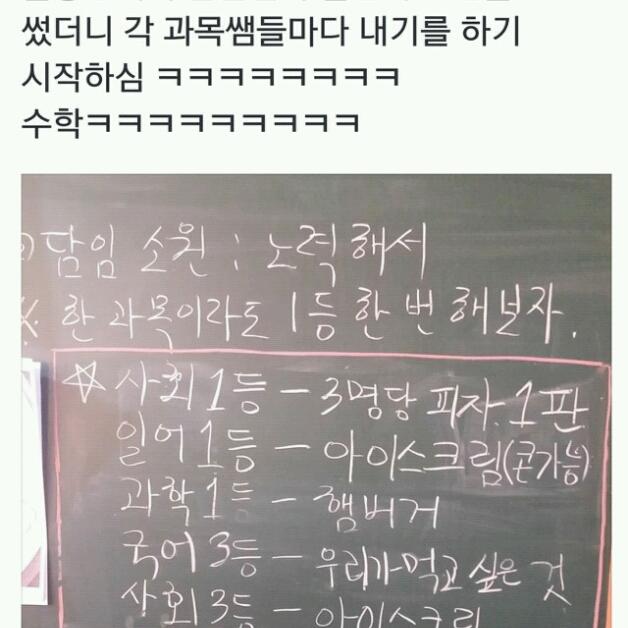 썼더니 각 과목쌤들마다 내기를 하기
시작하심 ㅋㅋㅋㅋㅋㅋㅋㅋ
수학ㅋㅋㅋㅋㅋㅋㅋㅋㅋ
담임 소원 : 노력해서
※ 한 과목이라도 1등 한 번 해보자.
☆ 사회 1등 - 3명당 피자 1판
일어 1등 - 아이스크림(콘가능)
과학 1등 - 햄버거
국어 3등 - 우리가 먹고 싶은 것
사회 3등 - 아이스크림